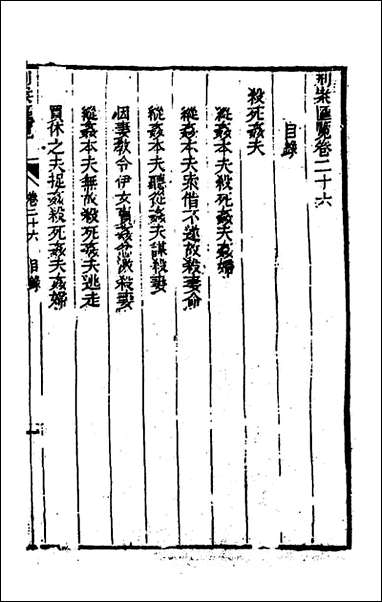 刑案匯覽卷二十六
目錄
殺死姦夫
縱姦本夫殺死姦夫姦婦
縱姦本夫索借不遂故殺妻命
縱姦本夫聽從姦夫謀殺妻
因妻教令伊女賣姦忿激殺妻
縱姦本夫無故殺死姦夫逃走
買休之夫捉姦殺死姦夫姦婦
刑案匯覽 卷二十六 目錄 一